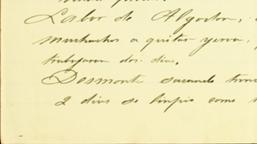 Labor de Algodon,
muchachos a quitar yerva,
trabajaron dos dias.
Desmonte sacando
2 dias de limpia como